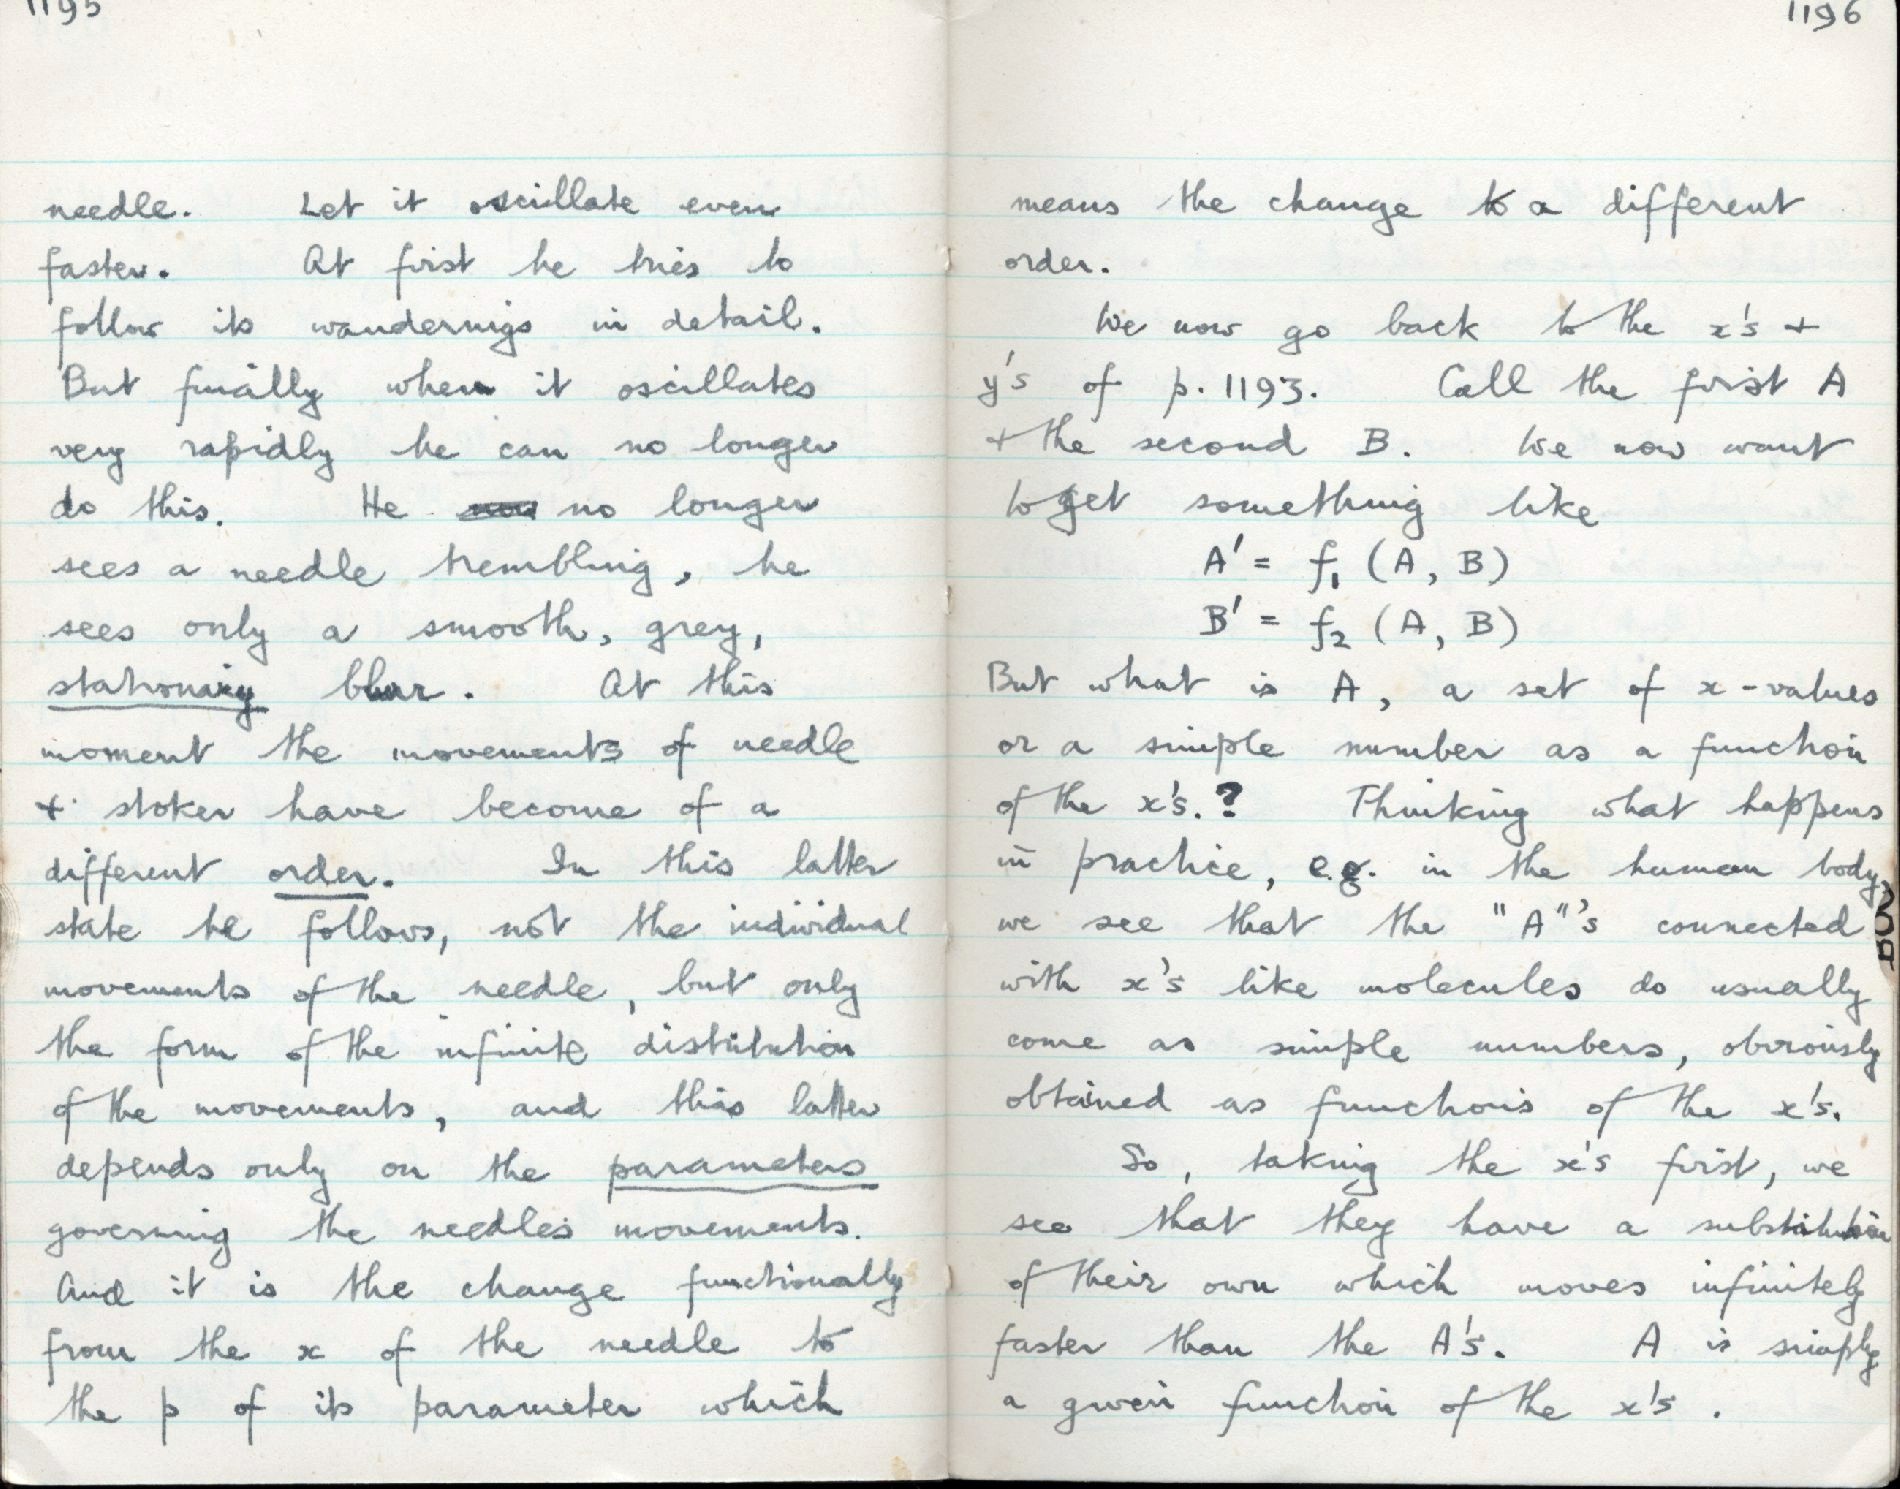 1195
needle. Let it oscillate even
faster. At first he tries to
follow its wanderings in detail.
But finally when it oscillates
very rapidly he can no longer
do this. He now no longer
sees a needle trembling, he
sees only a smooth, grey,
stationary blur. At this
moment the movements of needle
+ stoker have become of a
different order. In this latter
state he follows, not the individual
movements of the needle, but only
the form of the infinite distribution
of the movements, and this latter
depends only on the parameters
governing the needle's movements.
And it is the change functionally
from the x of the needle to
the p of its parameter which
1196
means the change to a different
order.
We now go back to the x's +
y's of p. 1193. Call the first A
+ the second B. We now want
to get something like
A' = f₁ (A, B)
B' = f₂ (A, B)
But what is A, a set of x-values
or a simple number as a function
of the x's.? Thinking what happens
in practice, e.g. in the human body,
we see that the "A"'s connected
with x's like molecules do usually
come as simple numbers, obviously
obtained as functions of the x's.
So, taking the x's first, we
see that they have a substitution
of their own which moves infinitely
faster than the A's. A is simply
a given function of the x's.